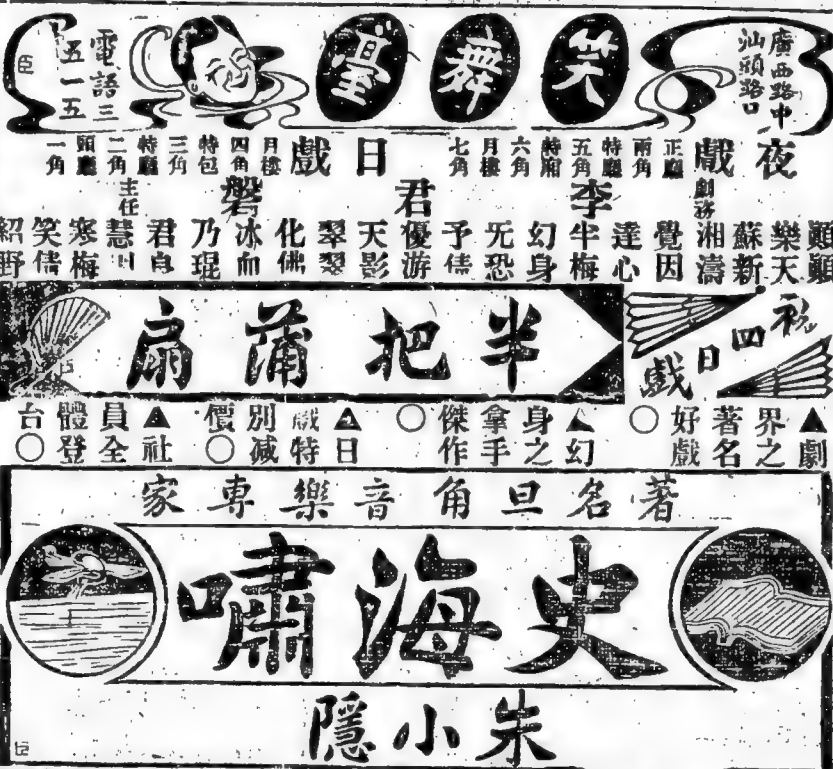 廣西路中
汕頭路口
笑舞臺
電話三
五一五
夜戲
正廳兩角
特廳五角
特廂六角
月樓七角
日戲
月樓四角
特包三角
特廳二角
頭廳一角
顚顚
樂天
蘇新
劇務
湘濤
覺因
達心
李
半梅
幻身
旡恐
予倩
君
優游
天影
翠翠
化佛
磐
冰血
乃琨
主任
寒梅
笑倩
紹野
初四日戲
半把蒲扇
▲劇界之著名好戲○
▲幻身之拿手傑作○
▲日戲特別減價○
▲社員全體登台○
著名旦角音樂專家
史海嘯
朱小隱